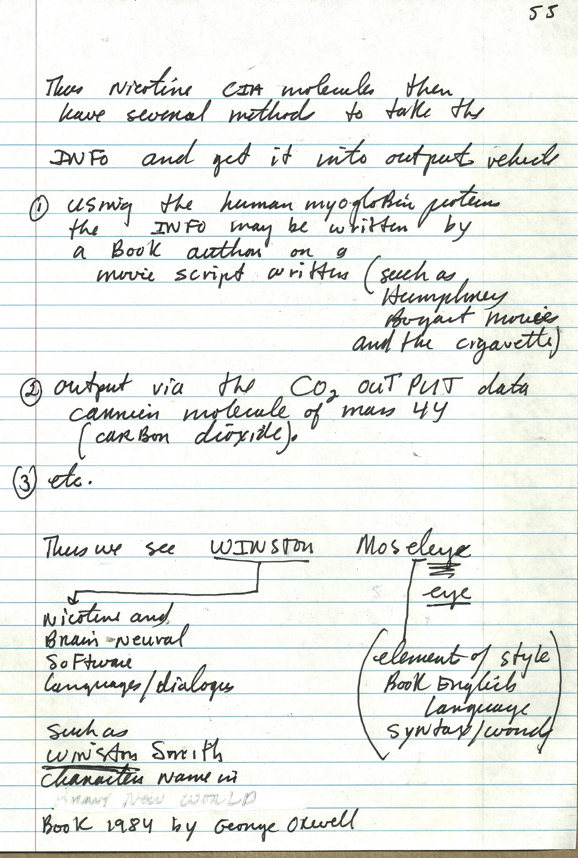 55
Thus Nicotine CIA molecules then
have several method to take the
INFO and get it into output vehicle
① using the human myogloBin proteins
the INFO may be written by
a Book author on a
movie script written (such as
Humphrey
Bogart movies
and the cigarette)
② output via the CO2 OUTPUT data
carrier molecule of mass 44
(carBon dioxide).
③ etc.
Thus we see WINSTON Moseleye
eye
Nicotine and
Brain-Neural
SoFtware
languages/dialogue
(elements of style
Book English
language
syntax/words)
Such as
WINSTON Smith
Character Name in
Brave New WORLD
Book 1984 by George Orwell